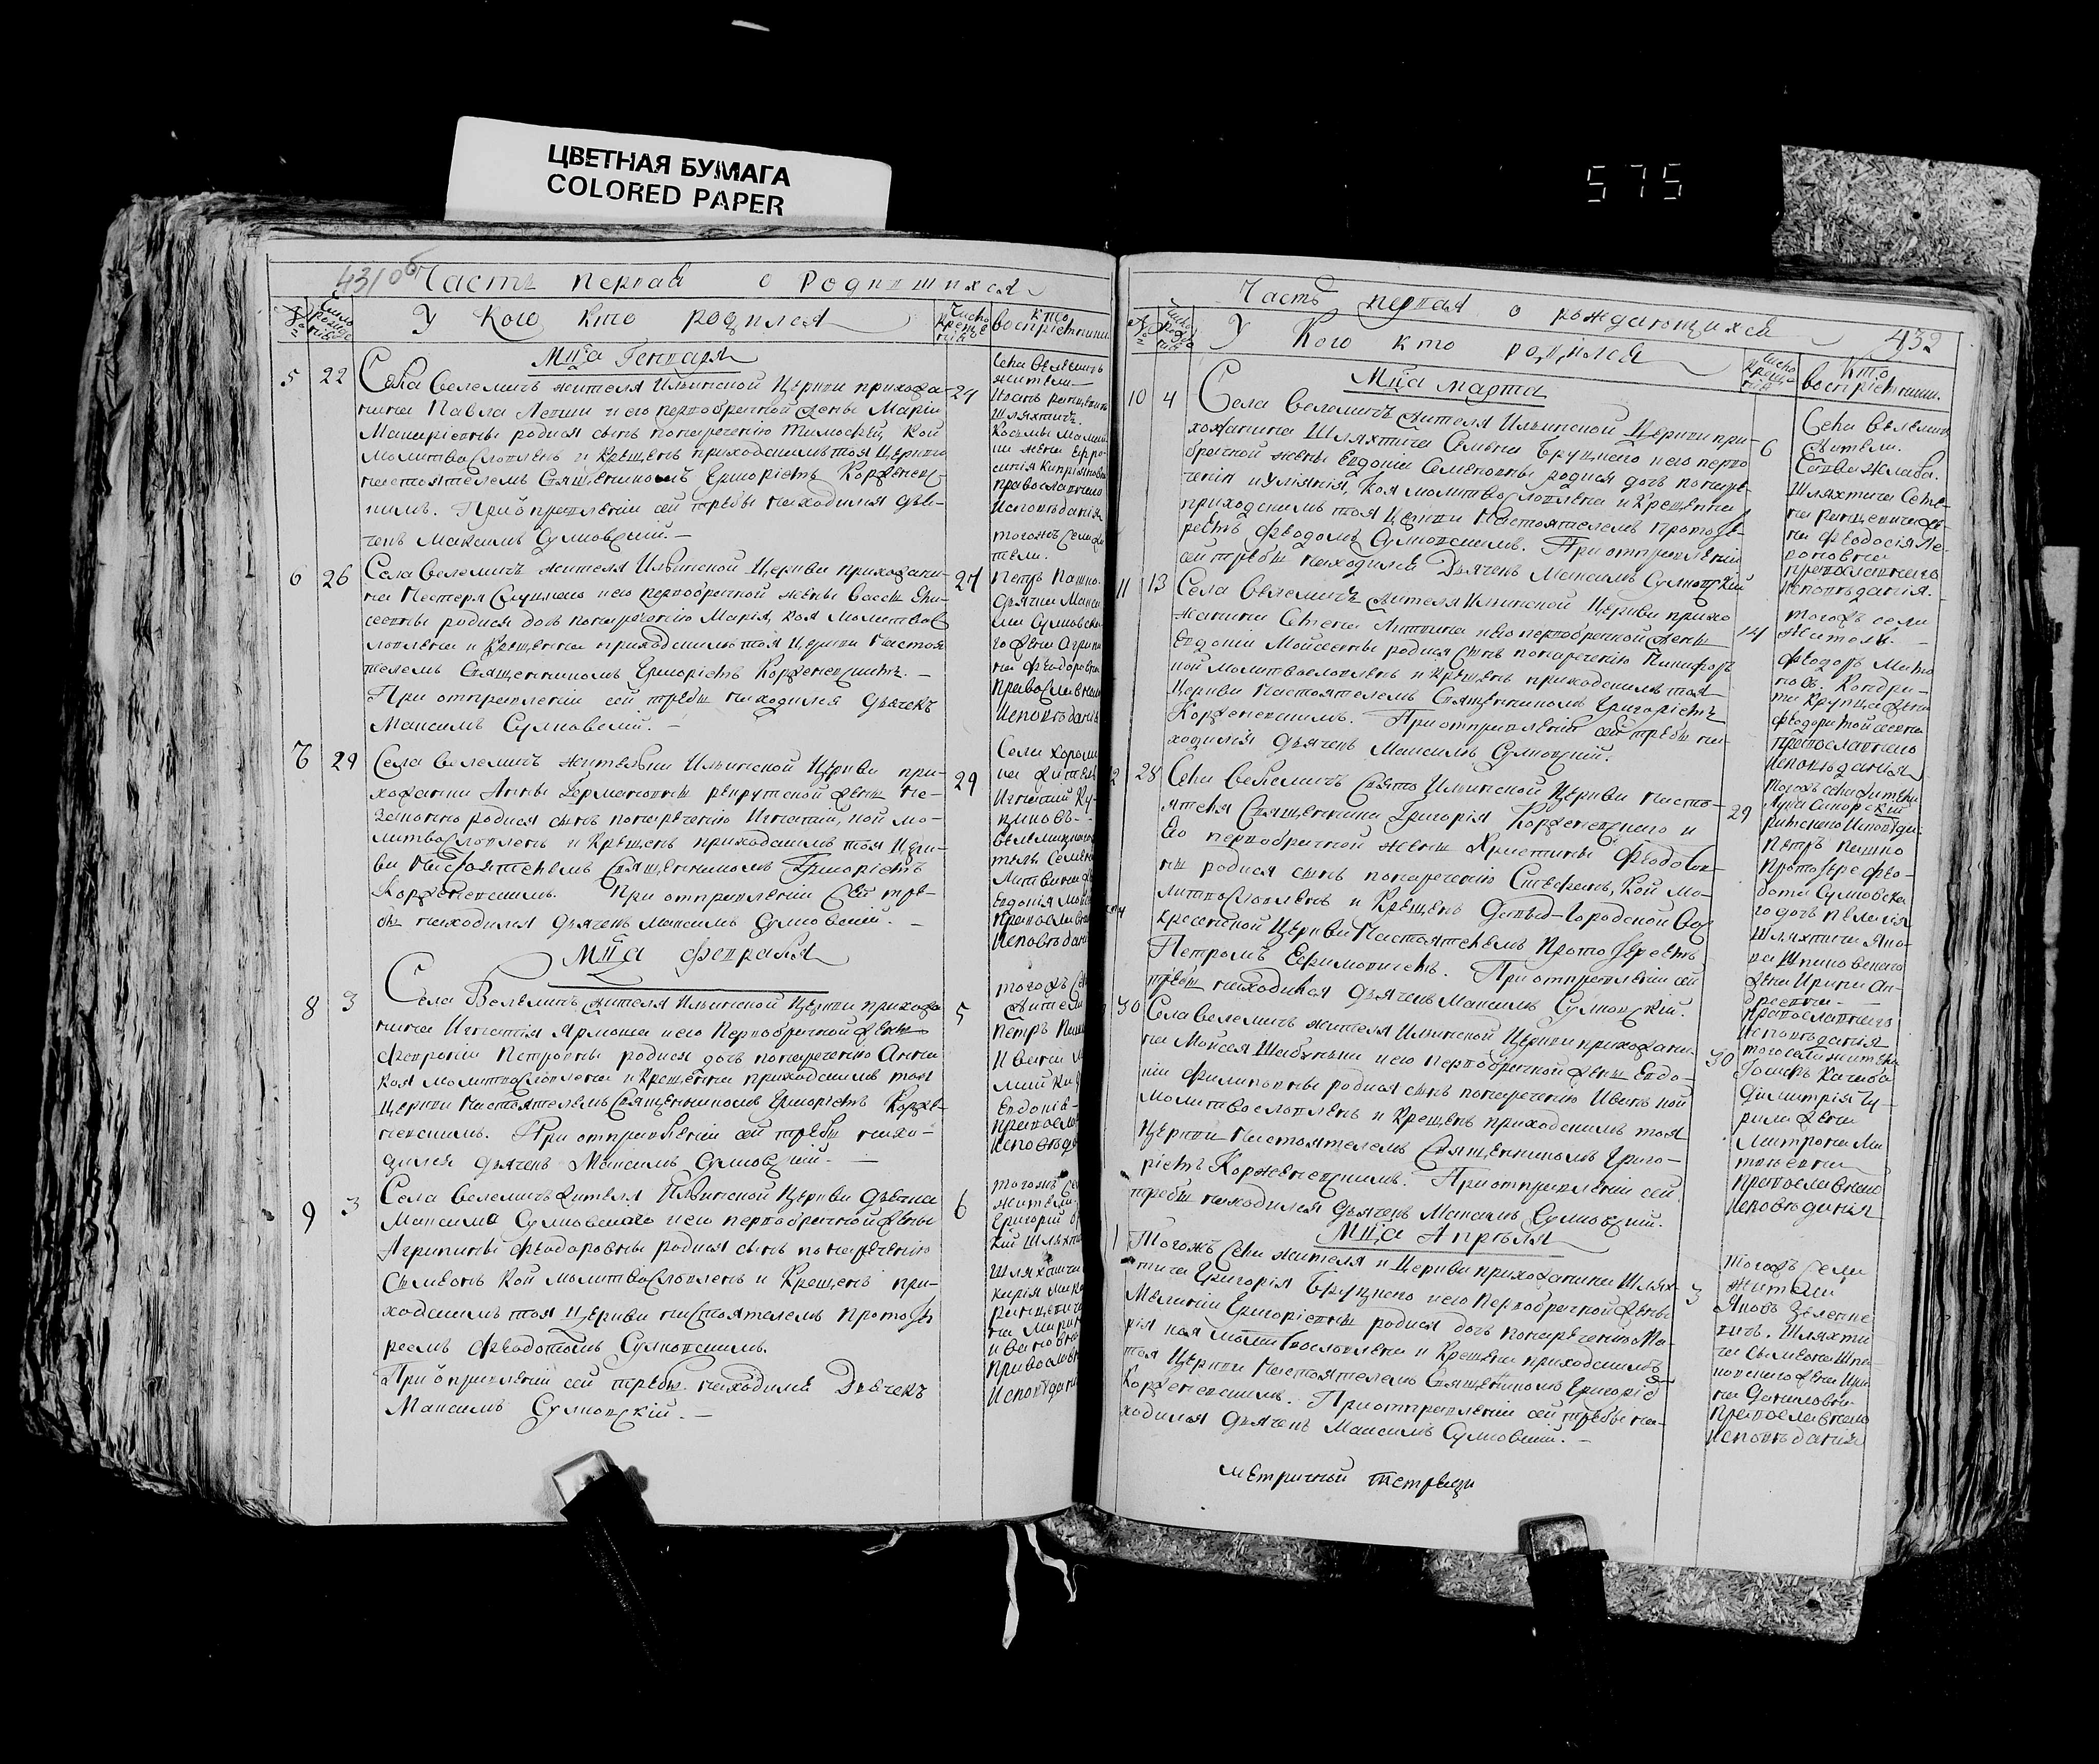 ЦВЕТНАЯ БУМАГА
COLORED PAPER
575
431об
Часть первая о родившихся
У кого кто родился
Число креще ния
кто воспріемники
Мца Генваря
5 22
Села Велемичъ жителя Ильинской Церкви прихожа-
нина Павла и его первобрачной жены Маріи
родися сынъ нареченію Тимофей, кой
молитвословленъ и крещенъ приходскимъ тоя Церкви
настоятелемъ Священникомъ Григоріемъ Корженев-
скимъ. При отправленіи сей требы находился дья-
чекъ Максимъ Сулковскій. —
24
Села Велемичъ
жители
Иванъ
шляхтичъ.
Козьмы
жена Ефро-
синія Кипріянова
православнаго
Исповѣданія
6 26
Села Велемичъ жителя Ильинской Церкви прихожани-
на Нестера и его первобрачной жены Вассы
родися дочь по нареченію Марія, коя молитвос-
ловлена и крещенна приходскимъ тоя Церкви настоя-
телемъ Священникомъ Григоріемъ Корженевскимъ. —
При отправленіи сей требы находился дьячекъ
Максимъ Сулковскій. —
27
тогожъ села жи
тели.
Петръ Пашко
дьячка Макси
ма Сулковска
го жена Агрипи
на Феодоровна
Православнаго
Исповѣданія
7 29
Села Велемичъ жительки Ильинской Церкви при-
хожанки Анны рекрутской жены не-
законно родися сынъ по нареченію Игнатій, кой мо-
литвословленъ и крещенъ приходскимъ тоя Церк-
ви настоятелемъ Священникомъ Григоріемъ
Корженевскимъ. При отправленіи сей тре-
бы находился дьячекъ Максимъ Сулковскій. —
29
Села
жители
Игнатій
Семена
Литвина
Евдокія
православнаго
Исповѣдан
Мца февраля
8 3
Села Велемичъ жителя Ильинской Церкви прихожа
нина Игнатія Ярмоша и его первобрачной жены
Февроніи Петровны родися дочь по нареченію Анна
коя молитвословлена и крещенна приходскимъ тоя
Церкви настоятелемъ Священникомъ Григоріемъ Корже-
невскимъ. При отправленіи сей требы нахо-
дился дьячекъ Максимъ Сулковскій. —
5
тогожъ Се
жители
Петръ
Ивана
Евдокія
правосла
Исповѣд
9 3
Села Велемичъ жителя Ильинской Церкви дьячка
Максима Сулковскаго и его первобрачной жены
Агрипины Феодоровны родися сынъ по нареченію
Сумеонъ кой молитвословленъ и крещенъ при-
ходскимъ тоя Церкви настоятелемъ протоіе
реемъ Феодотомъ Сулковскимъ.
При отправленіи сей требы находился Дьячекъ
Максимъ Сулковскій. —
6
тогожъ се
жители.
Григорій
кій шляхти
Шляхтича
на Марія
Ивановна
православн
Исповѣдані
Часть первая о рождающихся
432
У кого кто родился
Число креще ния
Кто воспріемники.
Мца марта
10 4
Села Велемичъ жителя Ильинской Церкви при-
хожанина Шляхтича Семена Бруцкого и его перво
брачной жены Евдокіи Семеновны родися дочь по наре-
ченію Иуліянія, коя молитвословлена и крещенна
приходскимъ тоя Церкви настоятелемъ протоіе-
реемъ Феодотомъ Сулковскимъ. При отправленіи
сей требы находился Дьячекъ Максимъ Сулковскій
6
Села Велемичъ
жители.
Шляхтича Семе-
на же-
на Феодосія Ле-
оновна
православнаго
исповѣданія.
11 13
Села Велемичъ жителя Ильинской Церкви прихо
жанина Семена Литвина и его первобрачной жены
Евдокіи Мойсеевны родися сынъ по нареченію Никифоръ
кой молитвословленъ и крещенъ приходскимъ тоя
Церкви настоятелемъ Священникомъ Григоріемъ
Корженевскимъ. При отправленіи сей требы на-
ходился дьячекъ Максимъ Сулковскій.
14
тогожъ села
жители —
Феодоръ
Кондра-
та жена
Феодора Мойсеевна
православнаго
исповѣданія
12 28
Села Велемичъ Свято Ильинской Церкви насто-
ятеля Священника Григорія Корженевскаго и
его первобрачной жены Христины Феодотов-
ны родися сынъ по нареченію Стефанъ, кой мо-
литвословленъ и крещенъ Давыд-Городской Вос
кресенской Церкви настоятелемъ протоіереемъ
Петромъ Ефимовичемъ. При отправленіи сей
требы находился дьячекъ Максимъ Сулковскій.
29
тогожъ села жители
римскаго исповѣда-
Петръ Пашко
протоіерея Фео-
дота Сулковска
го дочь Пелагія
шляхтича Яко-
ва Шпаковскаго
жена Ирина Ан-
дреевна —
православнаго
исповѣданія
30
Села Велемичъ жителя Ильинской Церкви прихожани-
на Мойсея и его первобрачной жены Евдо-
кіи Филиповны родися сынъ по нареченію Иванъ кой
молитвословленъ и крещенъ приходскимъ тоя
Церкви настоятелемъ Священникомъ Григо-
ріемъ Корженевскимъ. При отправленіи сей
требы находился дьячекъ Максимъ Сулковскій.
30
того села жители
Димитрія
жена
православнаго
исповѣданія
Мца Апрѣля
1
Тогожъ села жителя и Церкви прихожанина Шлях-
тича Григорія Бруцкого и его первобрачной жены
Меланіи Григоріевны родися дочь по нареченію Ма-
рія коя молитвословлена и крещена приходскимъ
тоя Церкви настоятелемъ Священникомъ Григоріе
Корженевскимъ. При отправленіи сей требы на-
ходился дьячекъ Максимъ Сулковскій. —
3
тогожъ села
жители
Яковъ
шляхти
ча Сумеона Шпа-
ковскаго жена Ири-
на Даниловна
православнаго
исповѣданія
метричной тетради